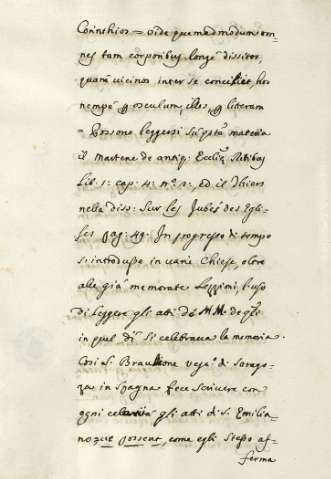 Corinthios = vide quemadmodum om-
nes tam corporibus longè dissitos,
quam vicinos inter se conciliet, hos
nempè p osculum, illos, p literam
= Possono leggersi su psta materia
il Martene de antiq: Eccliæ Ritibus
Lib. 1: cap: 4: n.º 1: ed il Thiers
nella diss: Sur les Jubès des Egli-
ses pag: 49: In progresso di tempo
s'introdusse in varie Chiese, oltre
alle già memorate Lezzioni, l'uso
di Leggere gli atti d6 MM. de qli
in quel dì si celebrava la memoria.
Così S. Braulione vesc.º di Sarago-
za in Spagna fece scrivere con
ogni celerità gli atti di S. Emilia-
no = que possent, come egli stesso af-
ferma